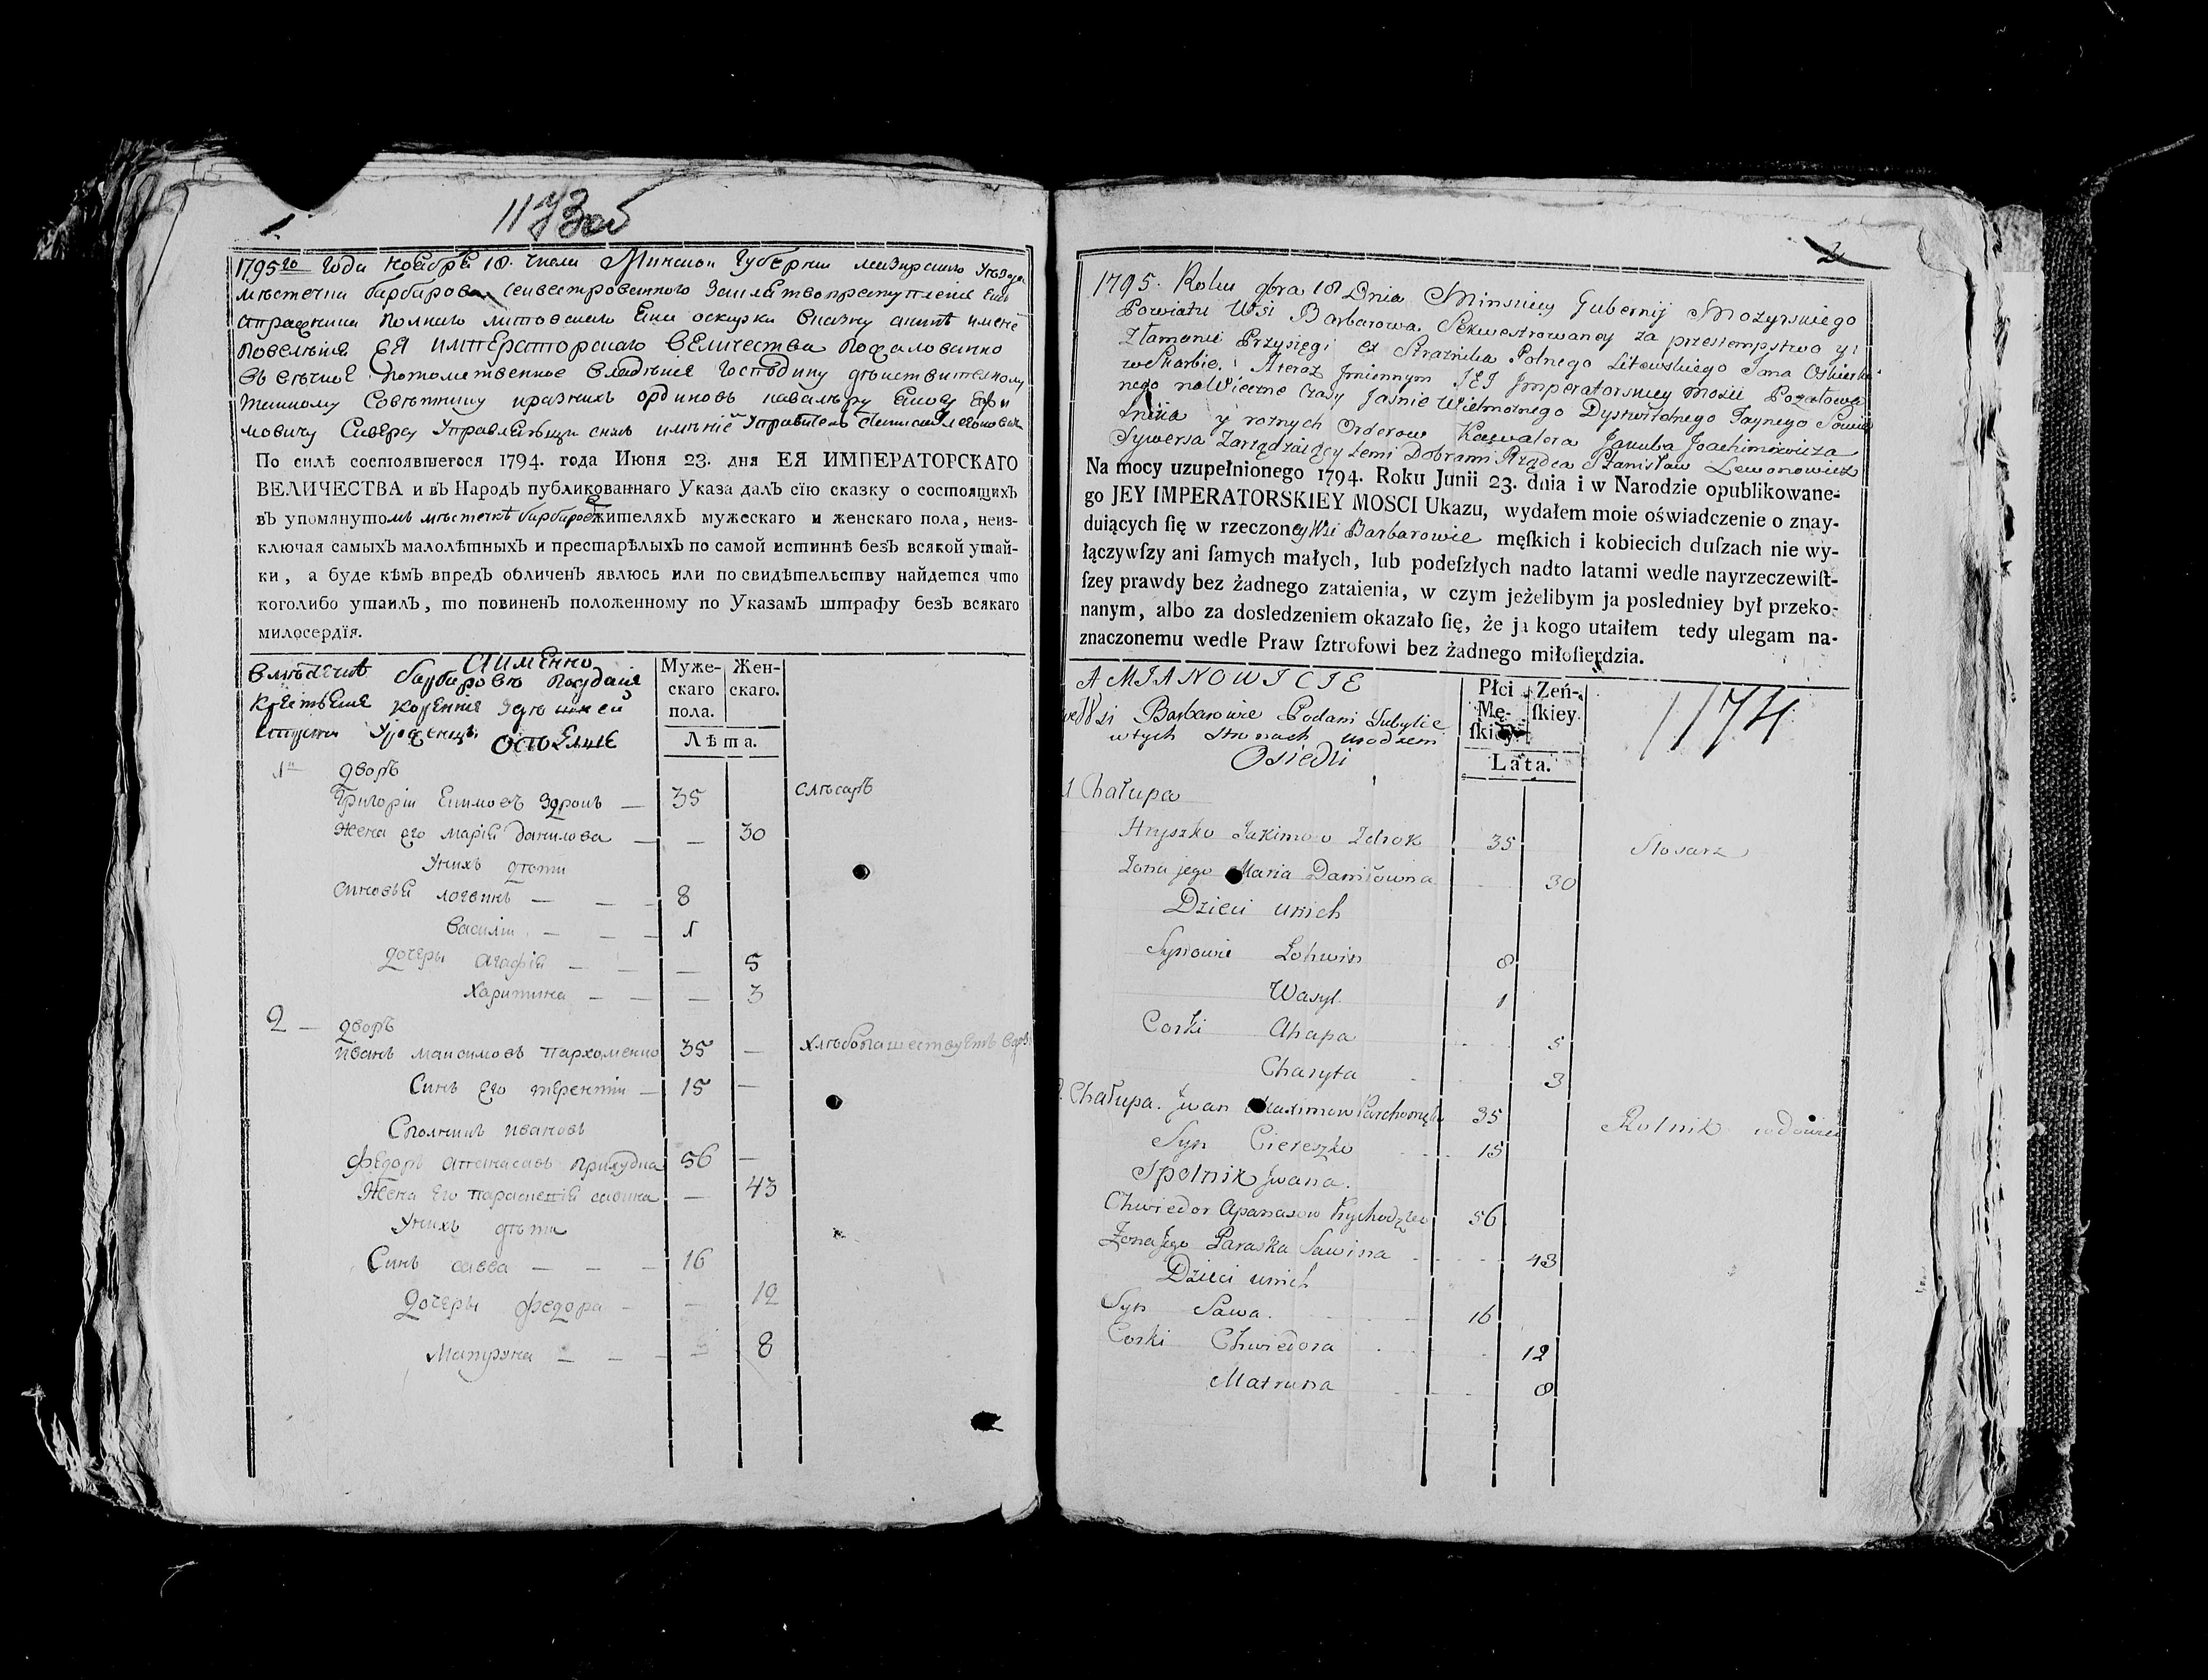 1173об
1795го года Ноября 18. числа Минской Губернии Мозырского уезда
местечка Барбарова секвестрованного за клятвопреступление Екс
стражника полнаго литовскаго Яна оскирки в казну а ныне имене
повеления ЕЯ ИМПЕРАТОРСКАГО ВЕЛИЧЕСТВА пожалованно
въ вечное потомственное владение Господину действителному
Тайному Советнику и разнихъ ординовъ кавалеру Якову Ефи
мовичу Сиверсу Управляющи симъ имение Управитель Станислав Левонович
По силѣ состоявшегося 1794. года Июня 23. дня ЕЯ ИМПЕРАТОРСКАГО
ВЕЛИЧЕСТВА и въ Народѣ публикованнаго Указа далъ сїю сказку о состоящихъ
въ упомянутомъ местечкѣ барбарове жителяхъ мужескаго и женскаго пола, неиз-
ключая самыхъ малолѣтныхъ и престарѣлыхъ по самой истиннѣ безъ всякой утай-
ки, а буде кѣмъ впредъ обличенъ явлюсь или по свидѣтельству найдется что
коголибо утаилъ, то повиненъ положенному по Указамъ штрафу безъ всякаго
милосердїя.
АИМЕННО
в местечке барбарове
ОСЕДЛИЕ
Муже-скаго пола.
Жен-скаго.
Лѣта.
1 дворъ
Григории Екимовъ Здрокъ — 35 слесаръ
Жена его Мария данилова — — 30
У нихъ дети
Синовья логвинъ — — — 8
Василии — — — 1
дочеры агафия — — — 5
Харитина — — — 3
2 — дворъ
Иванъ Максимовъ Пархоменко 35 — хлебопашествуетъ
Синъ его терентии — 15 —
Сполникъ Ивановъ
Федоръ Апанасовъ 56 —
Жена его Параскевия савина — 43
У нихъ дети
Синъ савва — — — 16
Дочеры федора — — 12
Матруна — — — 8
2
1795. Roku 9bra 18 Dnia Minskiey Gubernij Mozyrskiego
Powiatu Wsi Barbarowa Sekwestrowaney za przestempstwo y
złamanie Przysięgi ex Straznika Polnego Litewskiego Jana Oskierki
w Skarbie. A teraz Jmiennym JEJ Jmperatorskiey Mosci Pozałowa
nego na Wieczne Czasy Jasnie Wielmoznego Dystwitelnego Taynego Sowiet
nika y roznych Orderow Kawalera Jakuba Joachimowicza
Sywersa Zarządzaiący temi Dobrami Rządca Stanisław Lewonowicz
Na mocy uzupełnionego 1794. Roku Junii 23. dnia i w Narodzie opublikowane-
go JEY IMPERATORSKIEY MOSCI Ukazu, wydałem moie oświadczenie o znay-
duiących ſię w rzeczoney Wsi Barbarowie męſkich i kobiecich duſzach nie wy-
łączywſzy ani ſamych małych, lub podeſzłych nadto latami wedle nayrzeczewiſt-
ſzey prawdy bez żadnego zataienia, w czym jeżelibym ja posledniey był przeko-
nanym, albo za dosledzeniem okazało ſię, że ja kogo utaiłem tedy ulegam na-
znaczonemu wedle Praw ſztrofowi bez żadnego miłoſierdzia.
AMIANOWICIE
we Wsi Barbarowie Podani
w tych stronach urodzeni
Osiedli
Płci Mę-ſkiey.
Zeń-ſkiey.
Lata.
1174
1 Chałupa
Hryszko Jakimow Zdrok 35 Slosarz
Zona jego Maria Daniłowna 30
Dzieci unich
Synowie Lohwin 8
Wasyl 1
Corki Ahapa 5
Charyta 3
2 Chałupa. Jwan Maximow 35 Rolnik
Syn Ciereszko 15
Spolnik Jwana.
Chwiedor Apanasow Prychodzko 56
Zona jego Paraska Sawina 43
Dzieci unich
Syn Sawa. 16
Corki Chwiedora 12
Matruna 8